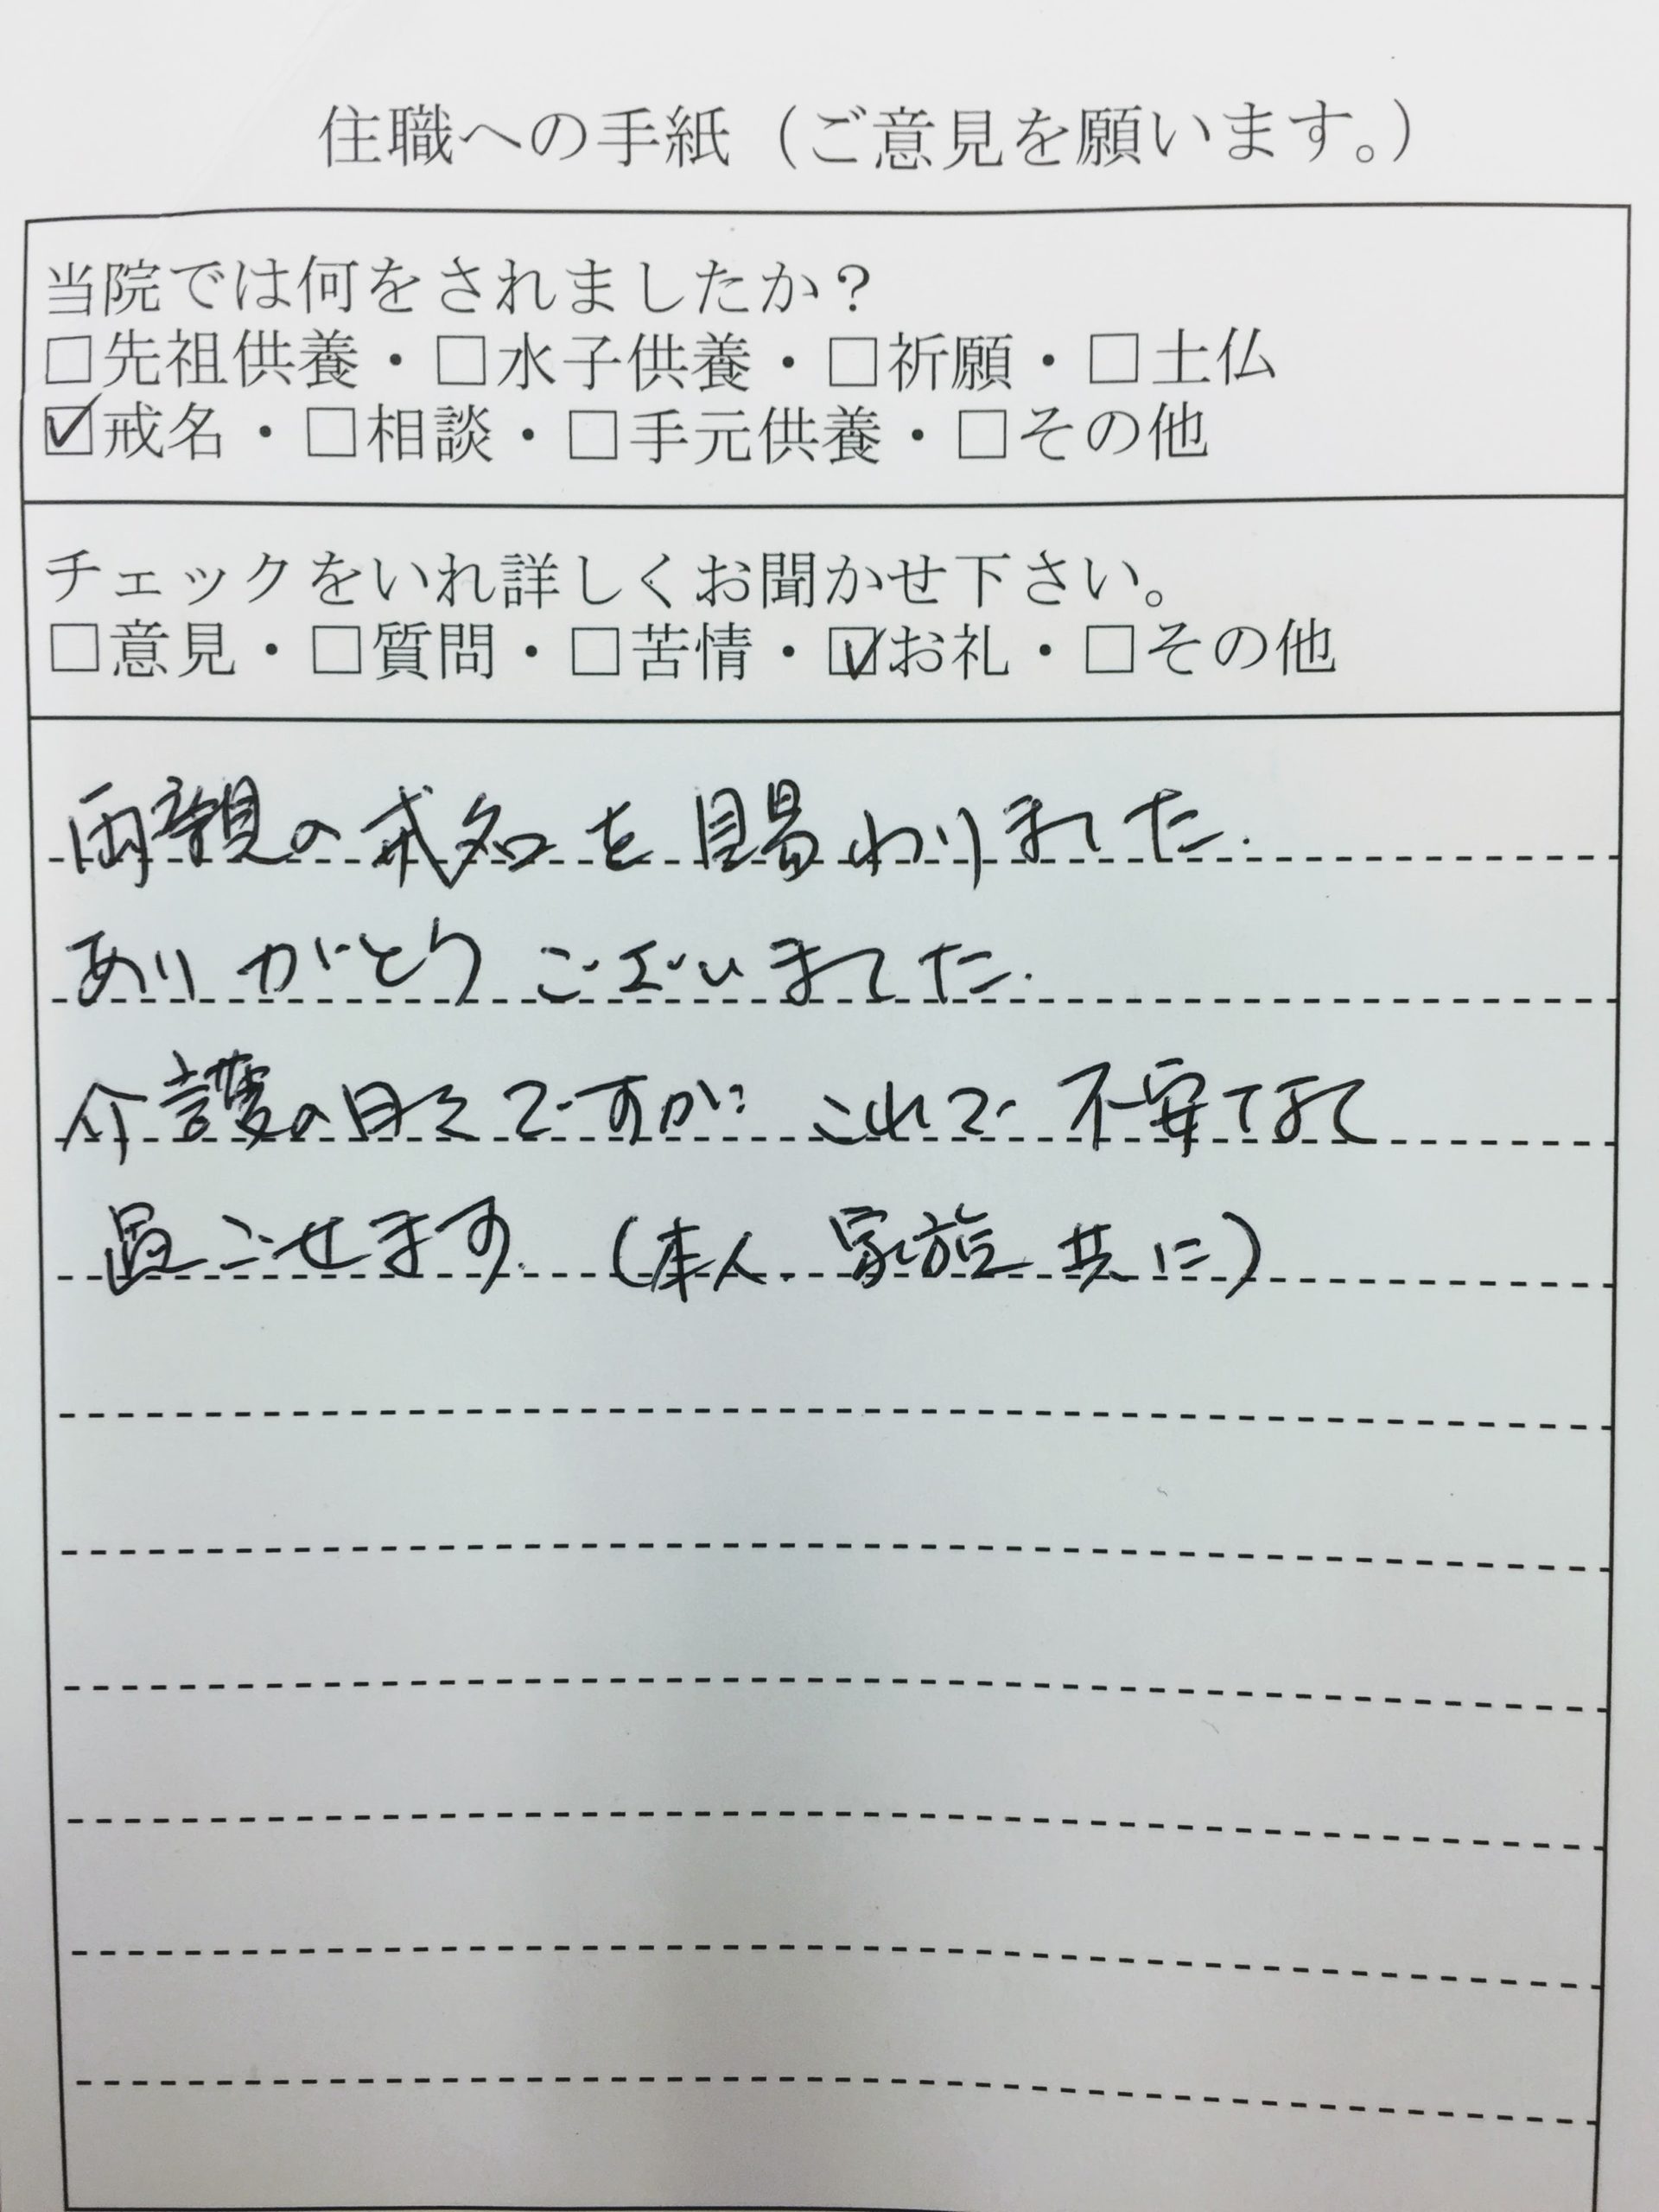 住職への手紙（ご意見を願います。）
当院では何をされましたか？
□先祖供養・□水子供養・□祈願・□土仏
☑戒名・□相談・□手元供養・□その他
チェックをいれ詳しくお聞かせ下さい。
□意見・□質問・□苦情・☑お礼・□その他
両親の戒名を賜わりました.
ありがとうございました.
介護の日々ですが これで 不安なく
過ごせます.（本人.家族 共に）